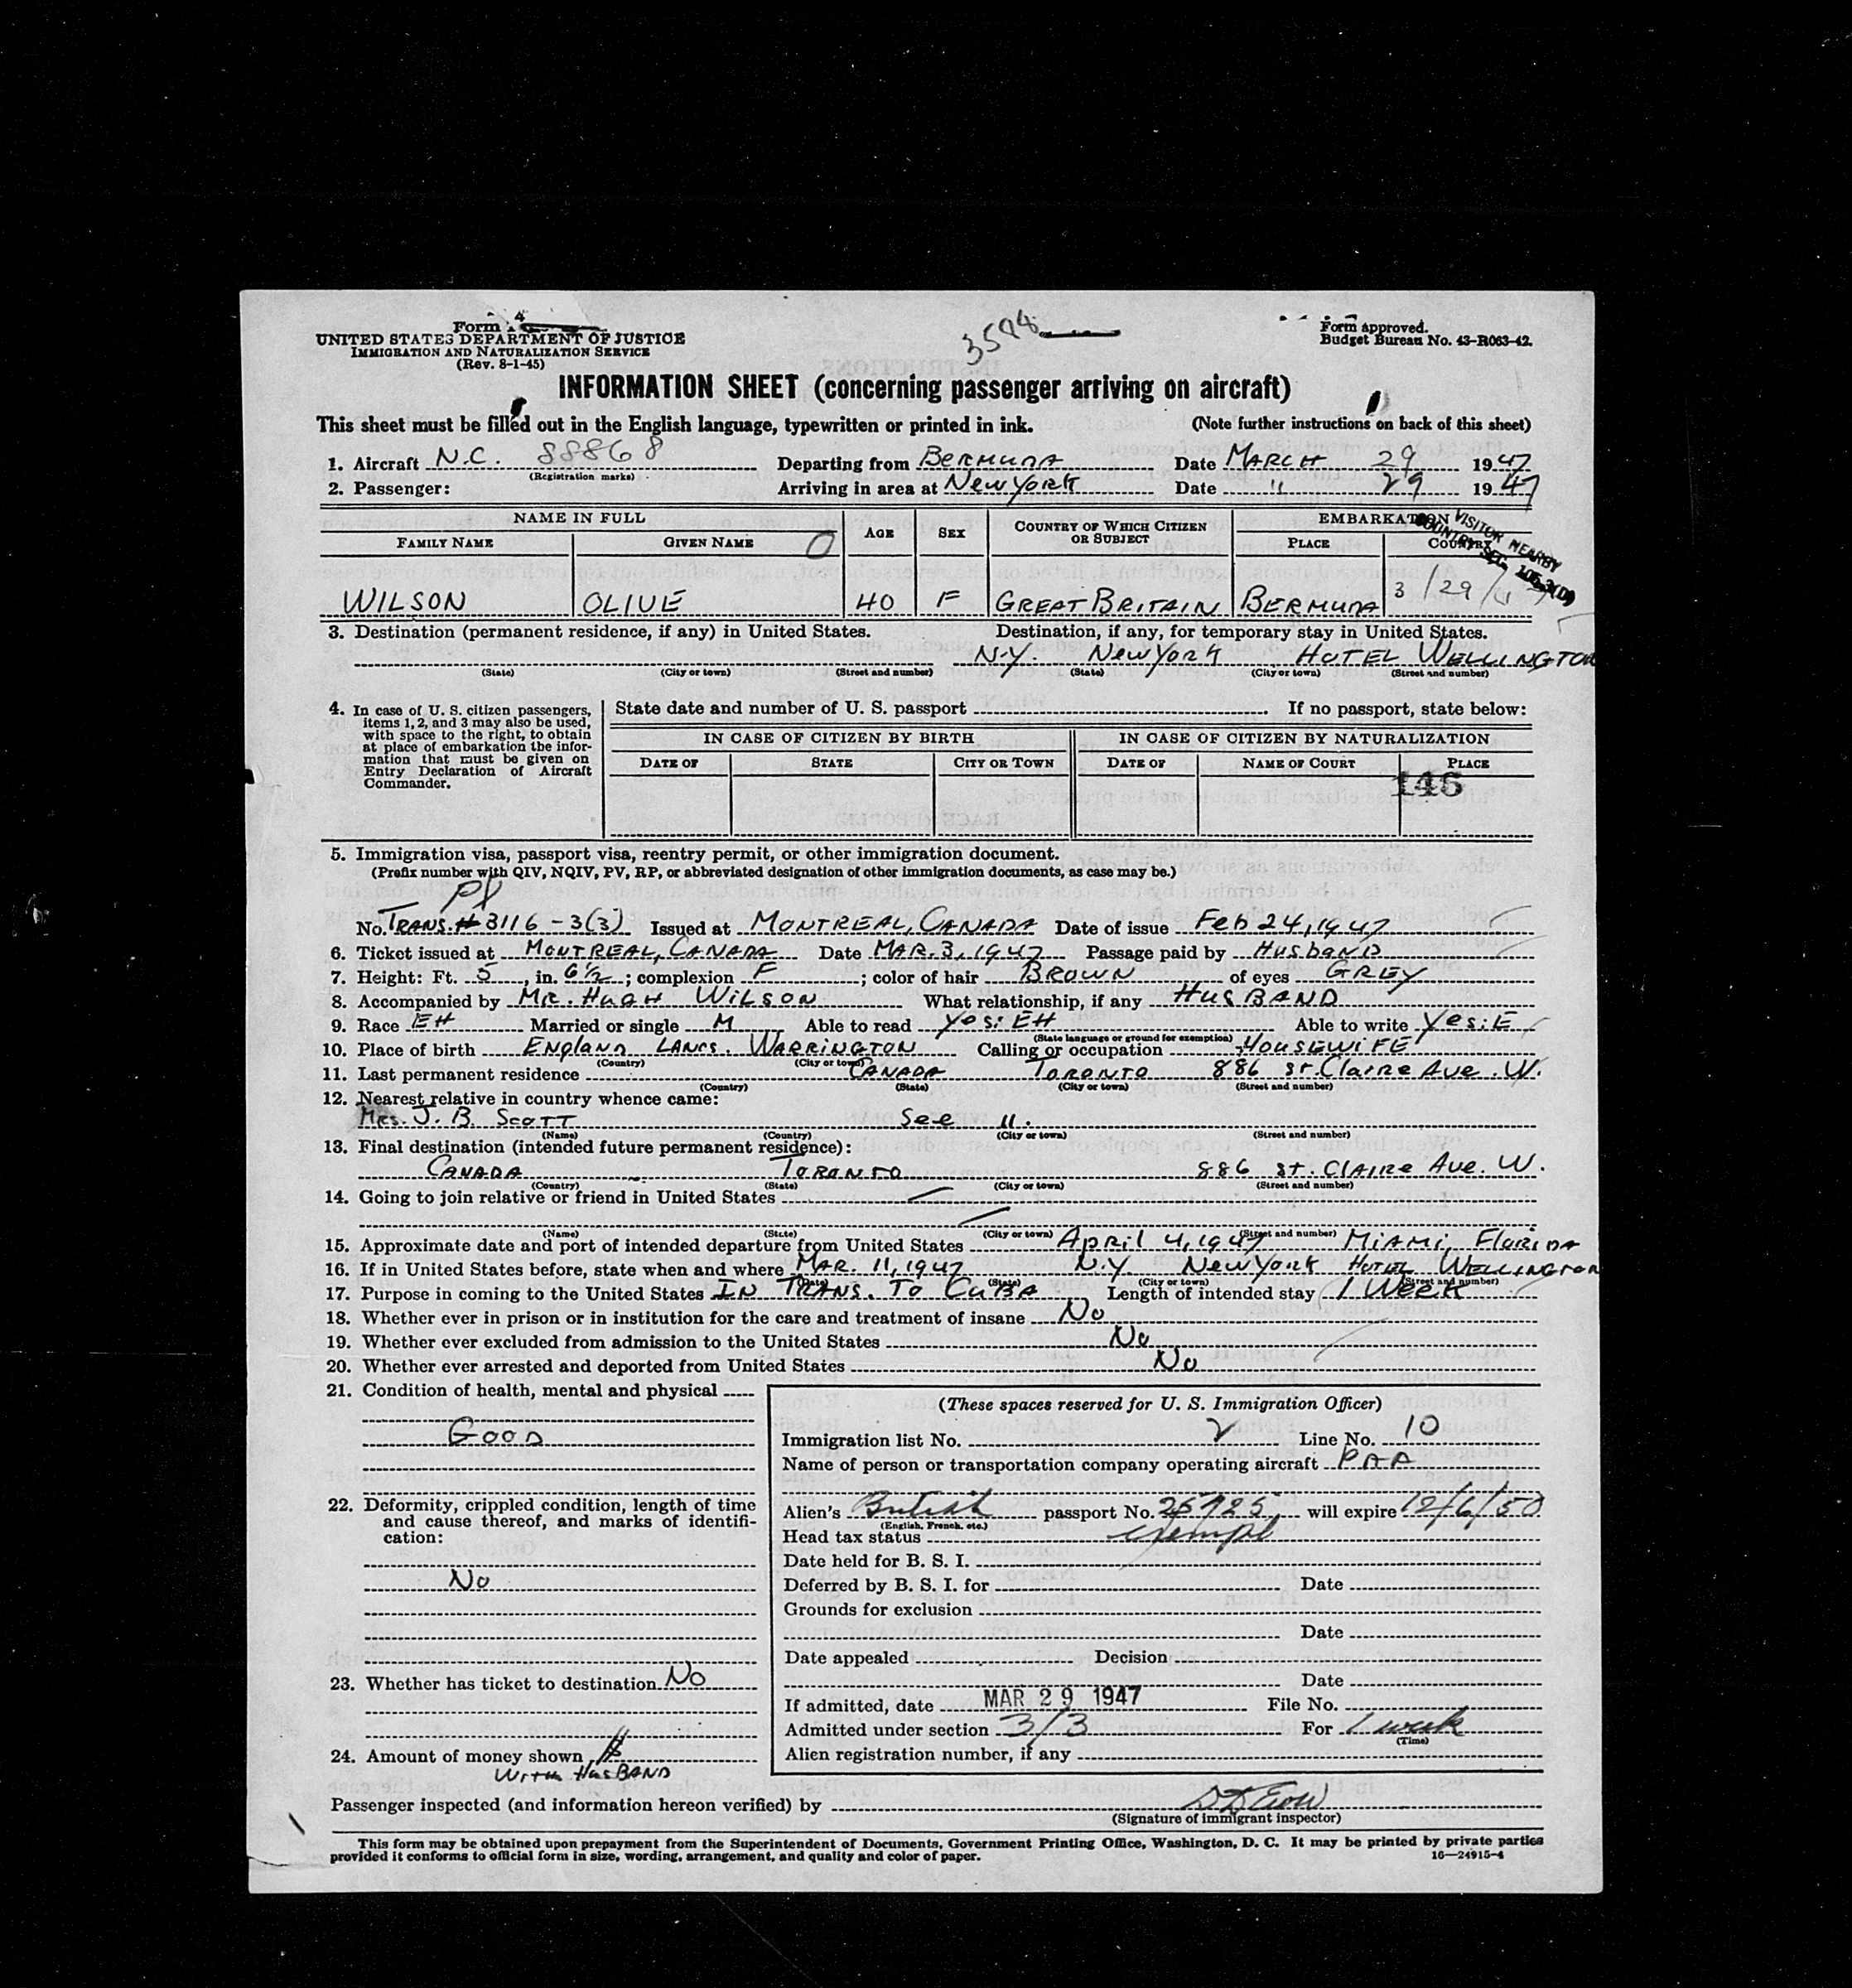 Form 4
UNITED STATES DEPARTMENT OF JUSTICE
IMMIGRATION AND NATURALIZATION SERVICE
(Rev. 8-1-45)
Form approved.
Budget Bureau No. 43-R063-42.
INFORMATION SHEET (concerning passenger arriving on aircraft)
This sheet must be filled out in the English language, typewritten or printed in ink. (Note further instructions on back of this sheet)
1. Aircraft N.C. 88868 Departing from BERMUDA Date MARCH 29 1947
(Registration marks)
2. Passenger: Arriving in area at New YORK Date " 29 1947
NAME IN FULL AGE SEX COUNTRY OF WHICH CITIZEN OR SUBJECT EMBARKATION
FAMILY NAME GIVEN NAME PLACE COUNTRY
VISITOR NEARBY
COUNTRY SEC.
WILSON OLIVE 40 F GREAT BRITAIN BERMUDA 3/29/
3. Destination (permanent residence, if any) in United States. Destination, if any, for temporary stay in United States.
N.Y. New York HOTEL WELLINGTON
(State) (City or town) (Street and number) (State) (City or town) (Street and number)
4. In case of U. S. citizen passengers, items 1, 2, and 3 may also be used, with space to the right, to obtain at place of embarkation the information that must be given on Entry Declaration of Aircraft Commander.
State date and number of U. S. passport If no passport, state below:
IN CASE OF CITIZEN BY BIRTH IN CASE OF CITIZEN BY NATURALIZATION
DATE OF STATE CITY OR TOWN DATE OF NAME OF COURT PLACE
146
5. Immigration visa, passport visa, reentry permit, or other immigration document.
(Prefix number with QIV, NQIV, PV, RP, or abbreviated designation of other immigration documents, as case may be.)
No. TRANS. # 3116-3(3) Issued at MONTREAL, CANADA Date of issue Feb 24, 1947
6. Ticket issued at MONTREAL, CANADA Date MAR. 3, 1947 Passage paid by HusbAND
7. Height: Ft. 5, in. 6½; complexion F; color of hair BROWN of eyes GREY
8. Accompanied by MR. HUGH WILSON What relationship, if any HUSBAND
9. Race EH Married or single M Able to read Yes: EH Able to write Yes: E
(State language or ground for exemption)
10. Place of birth England LANCS. WARRINGTON Calling or occupation HOUSEWIFE
(Country) (City or town)
11. Last permanent residence CANADA TORONTO 886 St. Claire Ave. W.
(Country) (State) (City or town) (Street and number)
12. Nearest relative in country whence came:
MRS. J. B. SCOTT See 11.
(Name) (Country) (City or town) (Street and number)
13. Final destination (intended future permanent residence):
CANADA TORONTO 886 St. Claire Ave. W.
(Country) (State) (City or town) (Street and number)
14. Going to join relative or friend in United States
(Name) (State) (City or town) (Street and number)
15. Approximate date and port of intended departure from United States April 4, 1947 MIAMI, FLORIDA
16. If in United States before, state when and where MAR. 11, 1947 N.Y. New York HOTEL WELLINGTON
(Date) (State) (City or town) (Street and number)
17. Purpose in coming to the United States IN TRANS. TO CUBA Length of intended stay 1 WEEK
18. Whether ever in prison or in institution for the care and treatment of insane No
19. Whether ever excluded from admission to the United States No
20. Whether ever arrested and deported from United States No
21. Condition of health, mental and physical
GOOD
22. Deformity, crippled condition, length of time and cause thereof, and marks of identification:
No
23. Whether has ticket to destination No
24. Amount of money shown $
WITH HUSBAND
(These spaces reserved for U. S. Immigration Officer)
Immigration list No. 2 Line No. 10
Name of person or transportation company operating aircraft PAA
Alien's British passport No. 25725 will expire 12/6/50
(English, French, etc.)
Head tax status exempt
Date held for B. S. I.
Deferred by B. S. I. for Date
Grounds for exclusion
Date
Date appealed Decision
Date
If admitted, date MAR 29 1947 File No.
Admitted under section 3/3 For 1 week
(Time)
Alien registration number, if any
Passenger inspected (and information hereon verified) by
(Signature of immigrant inspector)
This form may be obtained upon prepayment from the Superintendent of Documents, Government Printing Office, Washington, D. C. It may be printed by private parties
provided it conforms to official form in size, wording, arrangement, and quality and color of paper. 16—24915-4